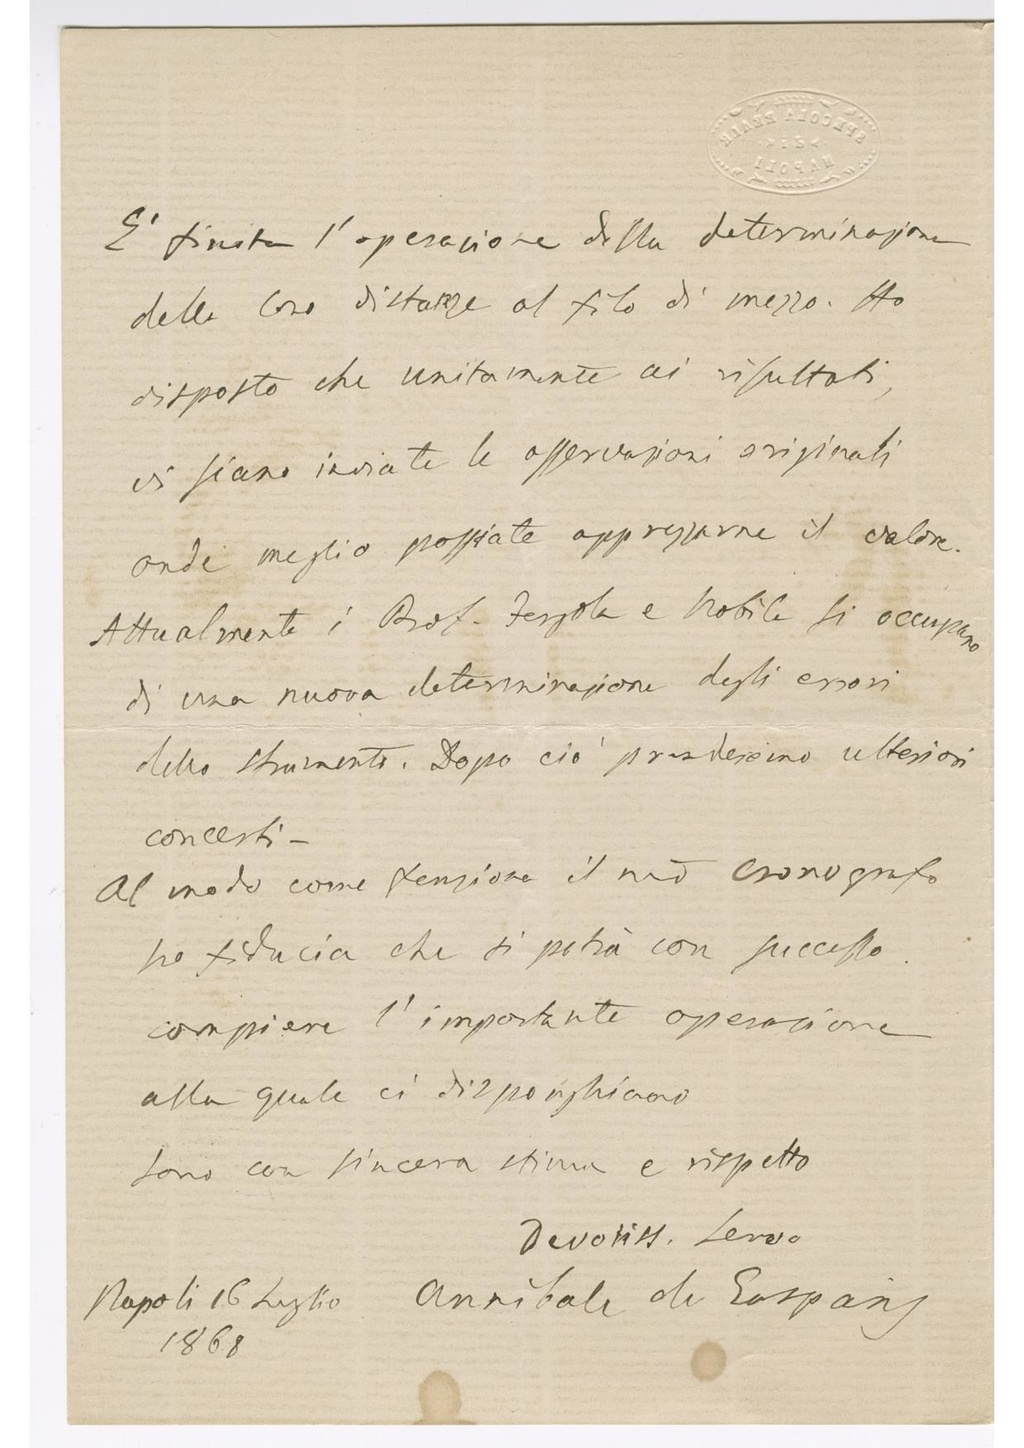 SPECOLA REALE
DI
NAPOLI
E' finita l'operazione della determinazione
delle loro distanze al filo di mezzo. Ho
disposto che unitamente ai risultati,
vi siano inviate le osservazioni originali
onde meglio possiate apprezzarne il valore.
Attualmente i Prof. Fergola e Nobile si occupano
di una nuova determinazione degli errori
dello strumento. Dopo ciò prenderemo ulteriori
concerti -
Al modo come funziona il mio cronografo
ho fiducia che si potrà con successo
compiere l'importante operazione
alla quale ci disponghiamo
Sono con sincera stima e rispetto
Devotiss. Servo
Annibale de Gasparis
Napoli 16 Luglio
1868